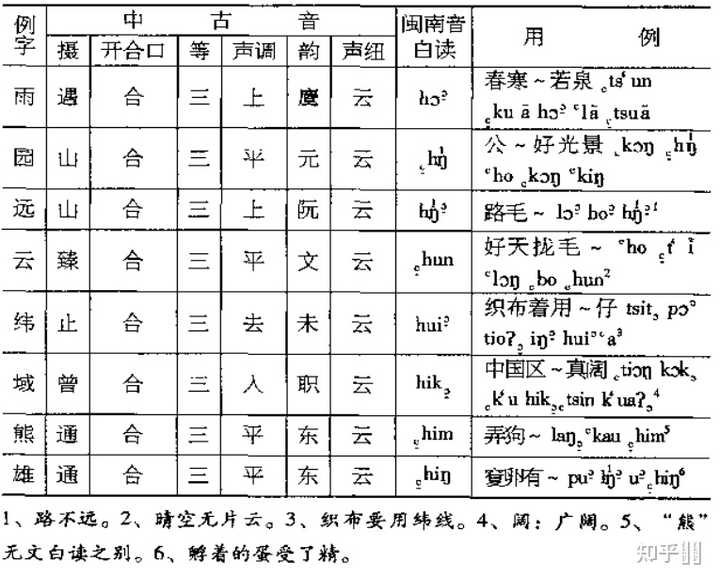 例字 中古音 闽南音白读 用例
摄 开合口 等 声调 韵 声纽
雨 遇 合 三 上 麌 云 hɔ² 春寒～若泉 ꜀tsʻun
꜁kuã hɔ² ꜂lã ꜁tsuã
园 山 合 三 平 元 云 ꜁hŋ̍ 公～好光景 ꜀kɔŋ ꜁hŋ̍
꜂ho ꜀kɔŋ ꜂kiŋ
远 山 合 三 上 阮 云 hŋ̍² 路毛～ lɔ² bo² hŋ̍² ¹
云 臻 合 三 平 文 云 ꜁hun 好天拢毛～ ꜂ho ꜀tʻĩ
꜂lɔŋ ꜁bo ꜁hun²
纬 止 合 三 去 未 云 hui² 织布着用～仔 tsit꜆ pɔ꜄
tioʔ꜇ iŋ² hui² ꜂a³
域 曾 合 三 入 职 云 hik꜇ 中国区～真阔 ꜀tiɔŋ kɔk꜆
꜀kʻu hik꜇ ꜀tsin kʻuaʔ꜆⁴
熊 通 合 三 平 东 云 ꜁him 弄狗～ laŋ꜅ ꜂kau ꜁him⁵
雄 通 合 三 平 东 云 ꜁hiŋ 卵有～ pu² lŋ̍² u² ꜁hiŋ⁶
1、路不远。2、晴空无片云。3、织布要用纬线。4、阔：广阔。5、“熊”
无文白读之别。6、孵着的蛋受了精。
知乎